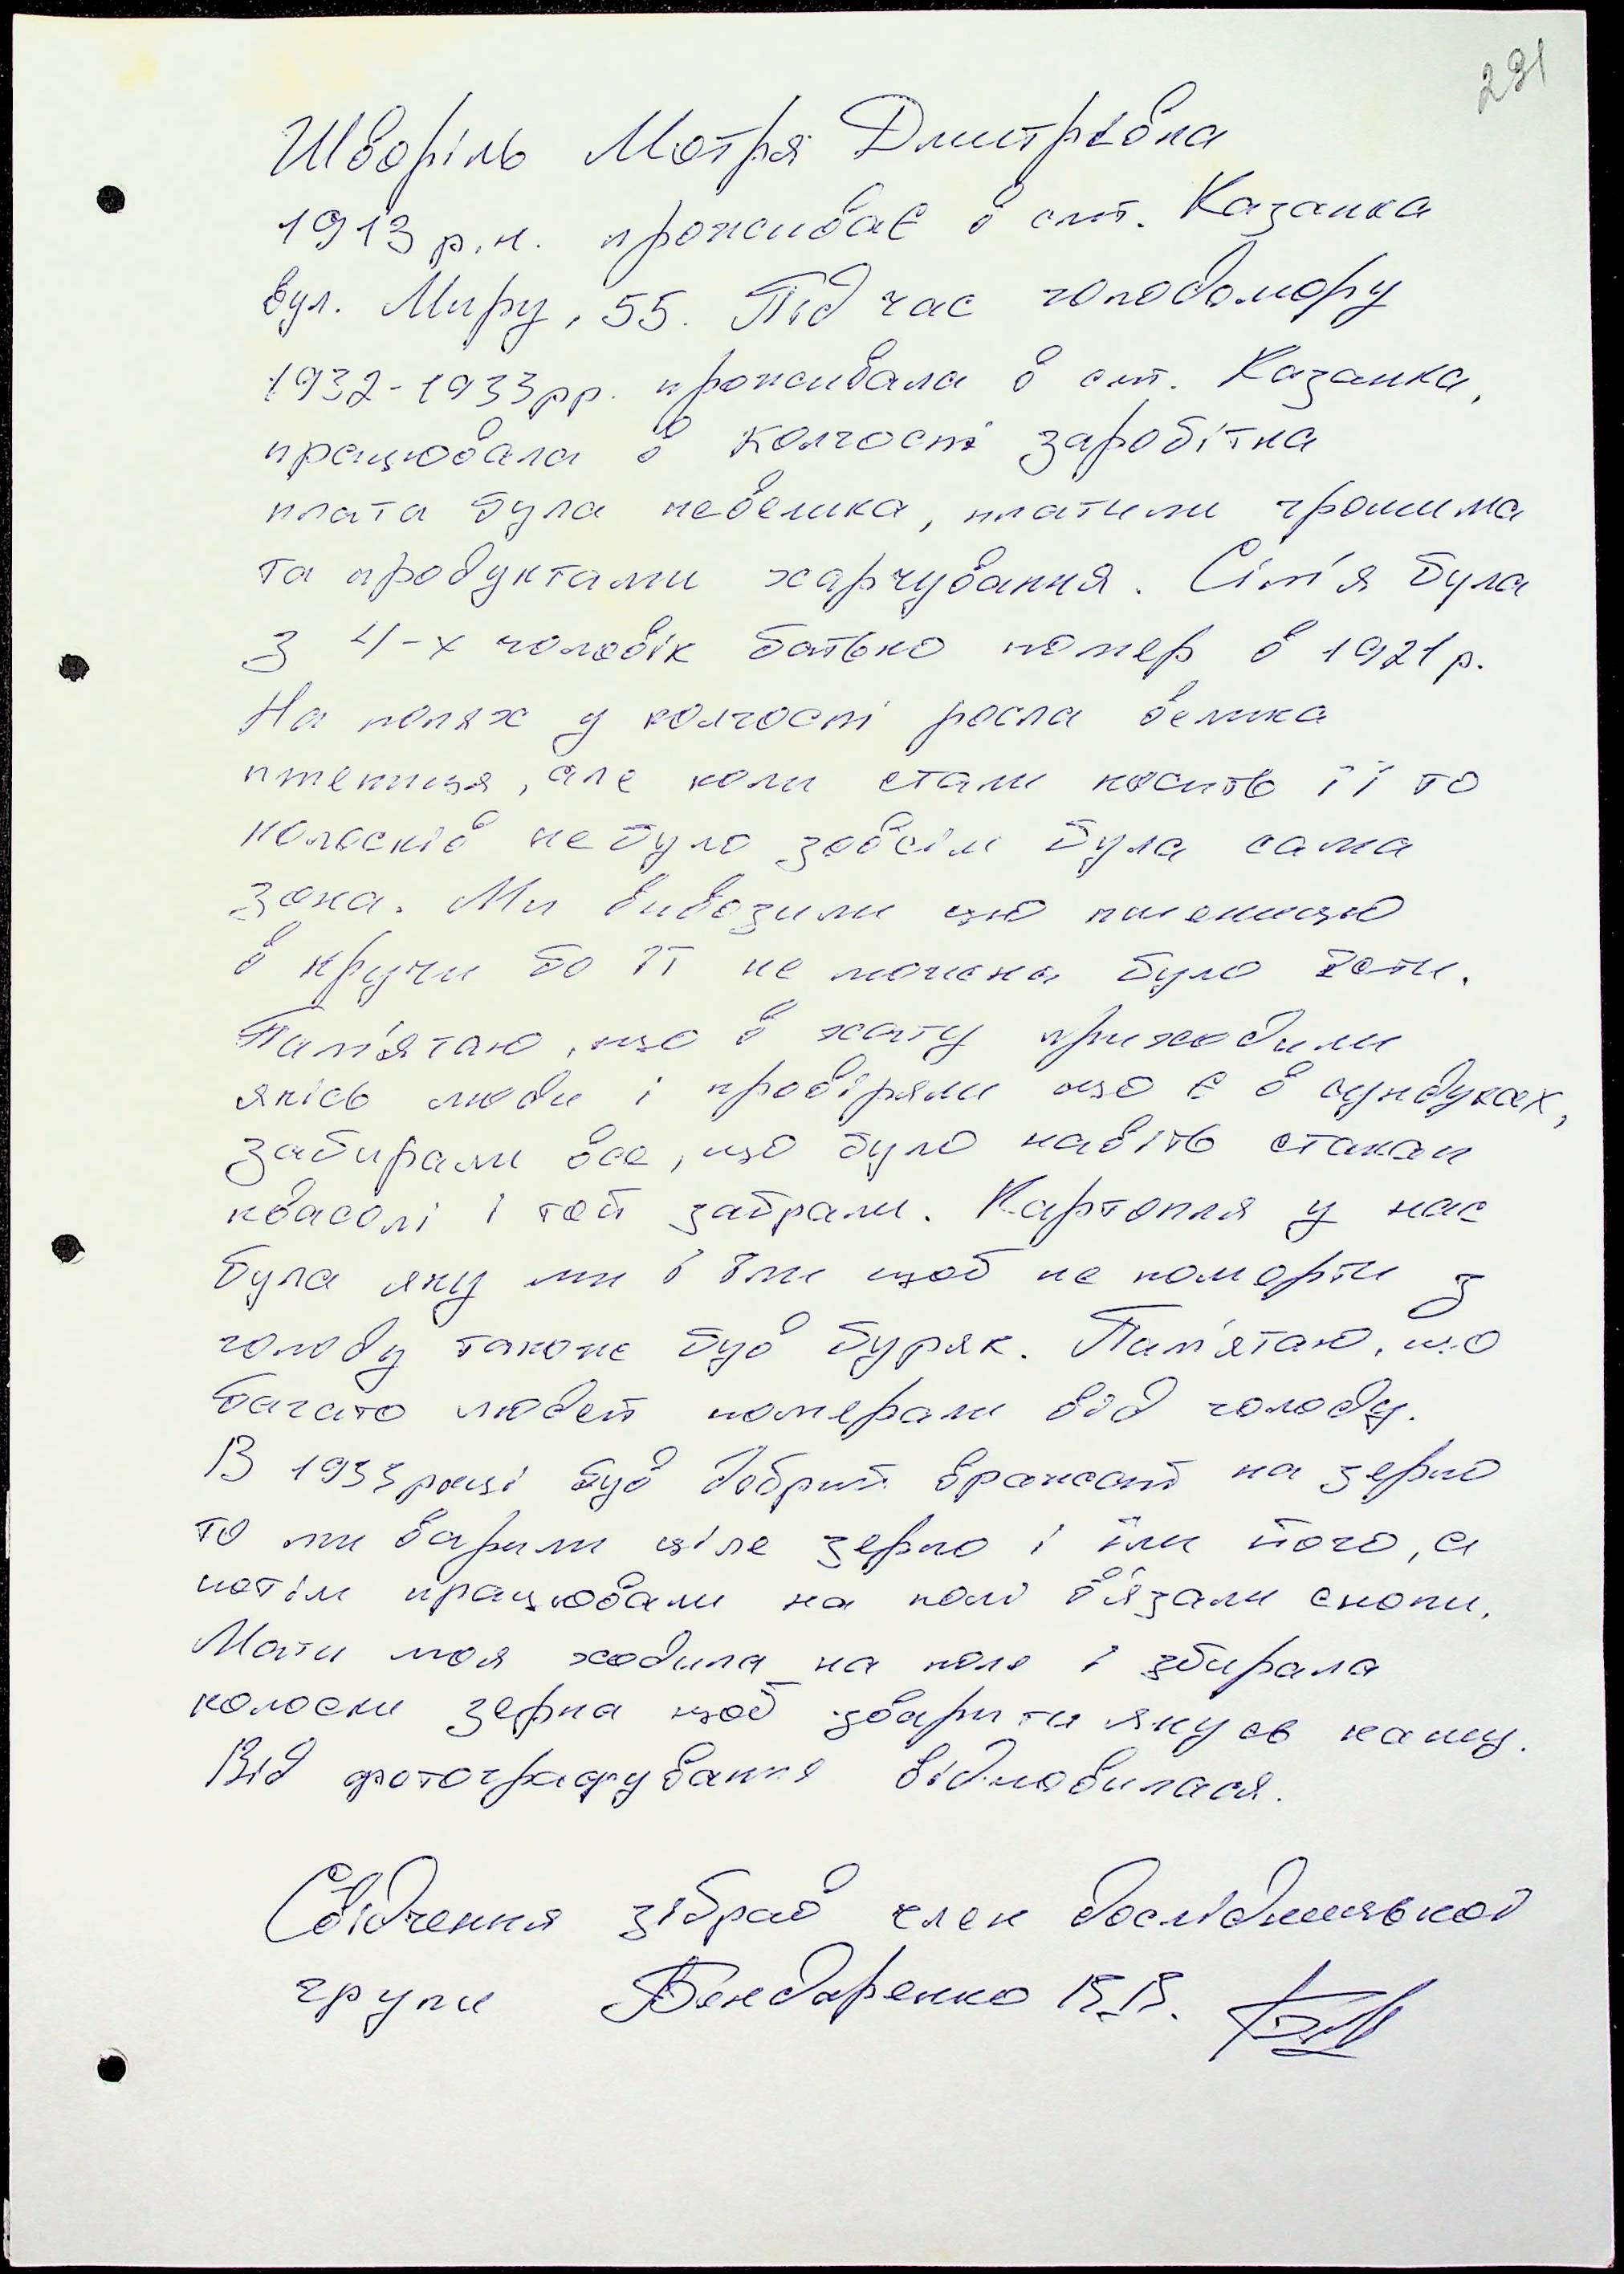 291
Шворінь Мотря Дмитрівна
1913 р.н. проживає в смт. Казанка
вул. Миру, 55. Під час голодомору
1932-1933 рр. проживала в смт. Казанка,
працювала в колгоспі заробітна
плата була невелика, платили грошима
та продуктами харчування. Сім'я була
з 4-х чоловік батько помер в 1921 р.
На полях у колгоспі росла велика
пшениця, але коли стали косить її то
колосків не було зовсім була сама
зона. Ми вивозили цю пшеницю
в кручи бо її не можна було їсти.
Пам'ятаю, що в хату приходили
якісь люди і провіряли що є в сундуках,
забирали все, що було навіть стакан
квасолі і той забрали. Картопля у нас
була яку ми й їли щоб не померти з
голоду також був буряк. Пам'ятаю, що
багато людей померали від голоду.
В 1933 році був добрий врожай на зерно
то ми варили ціле зерно і їли його, а
потім працювали на полі в'язали снопи.
Мати моя ходила на поле і збирала
колоски зерна щоб зварити якусь кашу.
Від фотографування відмовилася.
Свідчення зібрав член дослідницької
групи Бондаренко В.В.